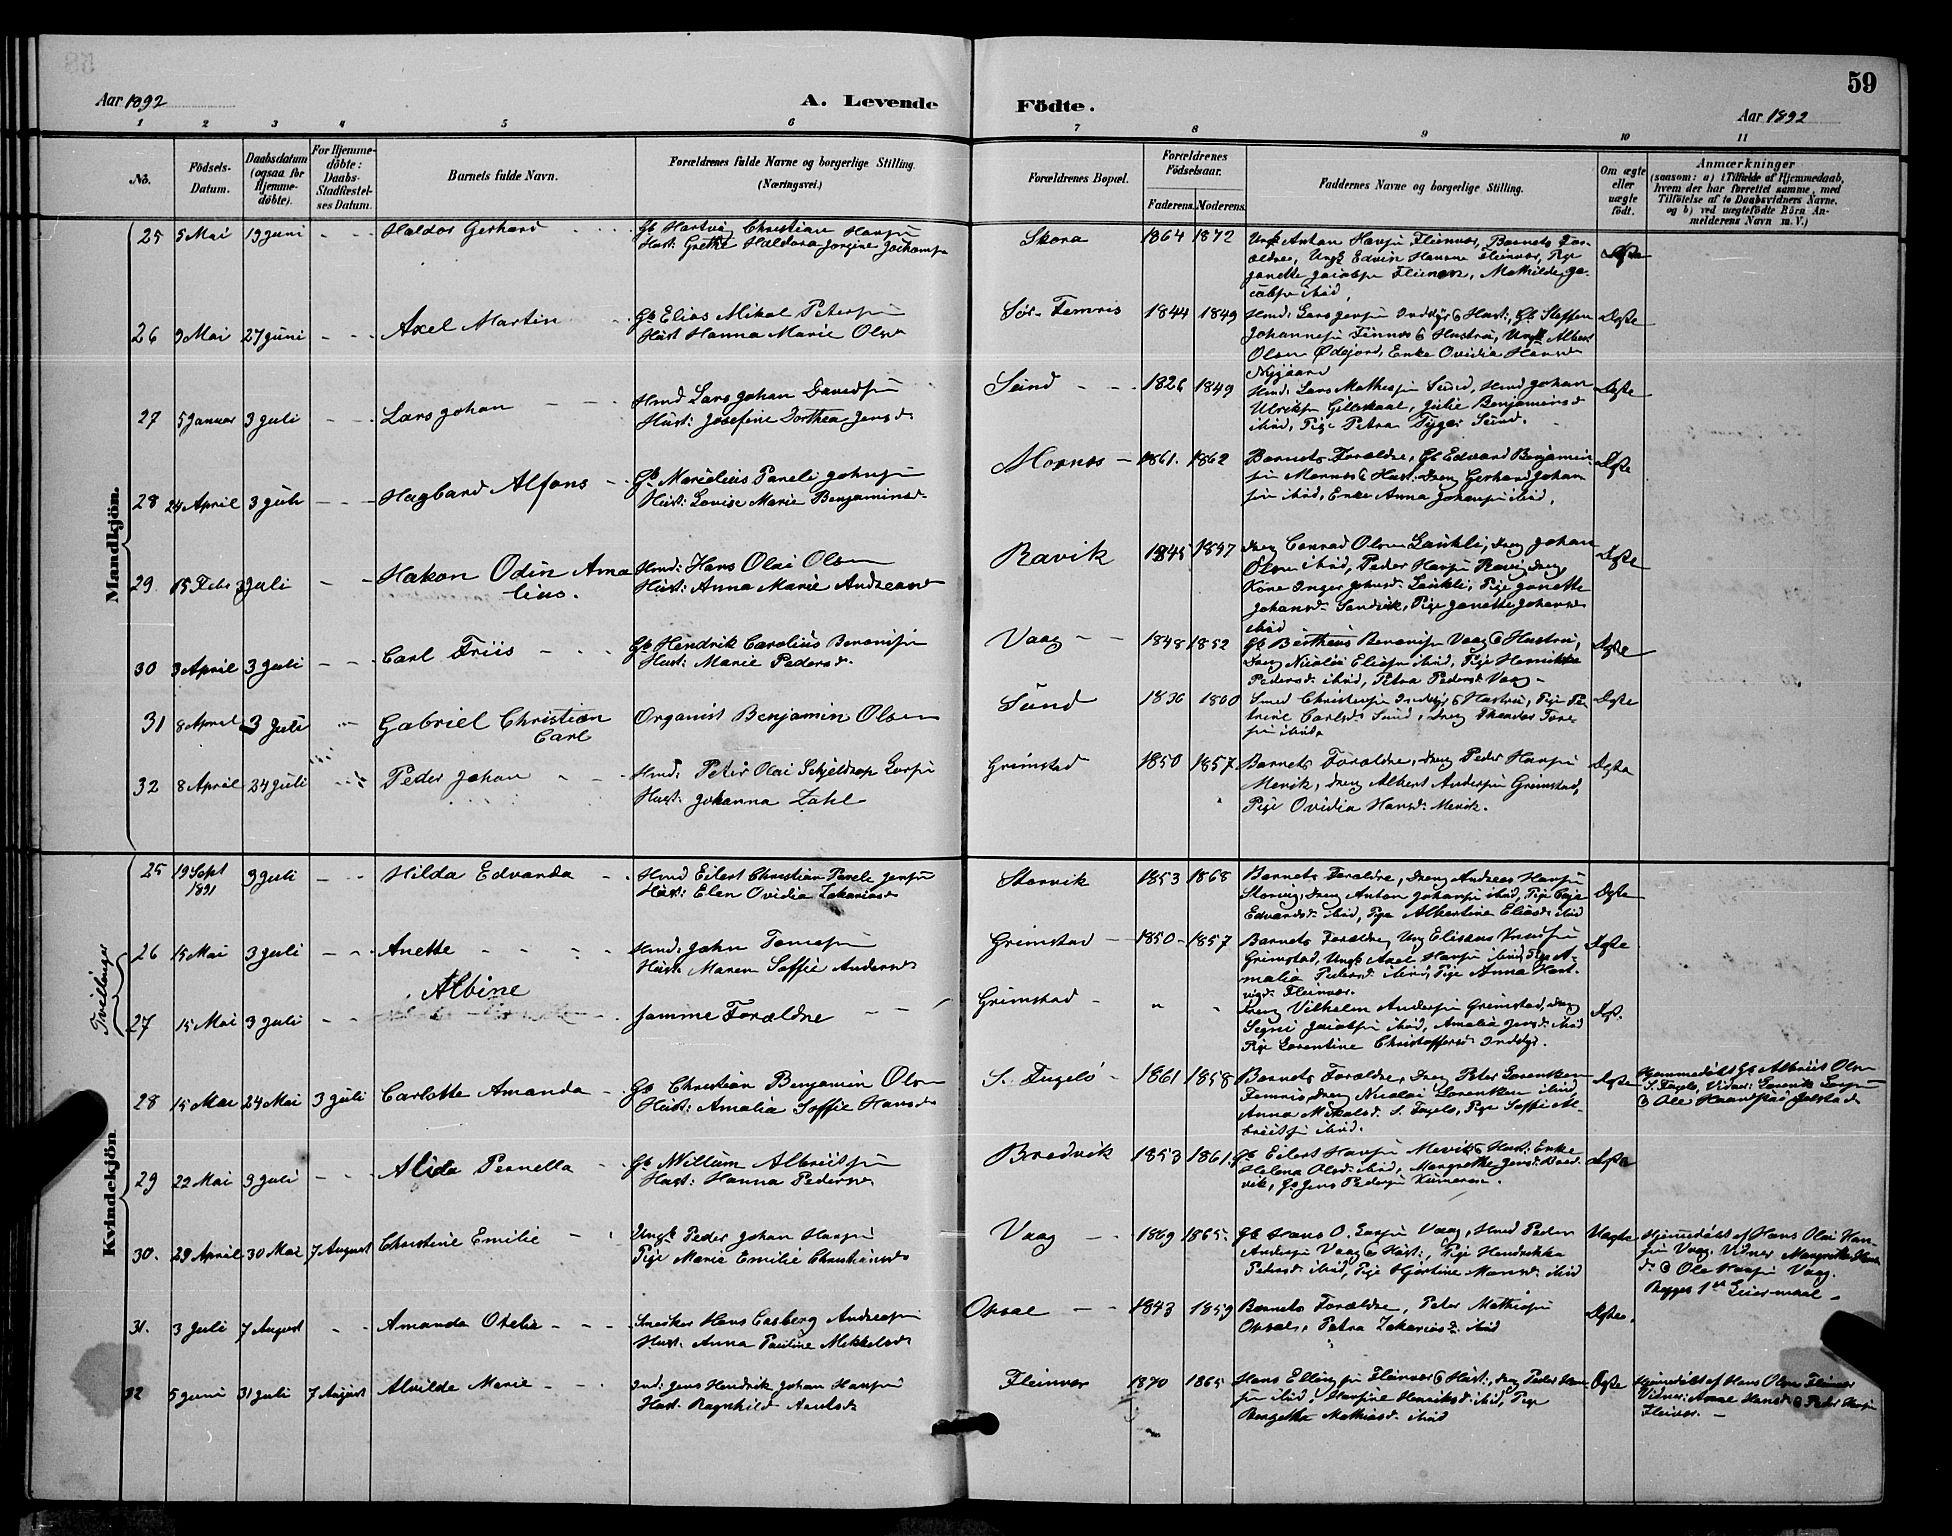 59
Aar 1892
A. Levende
Födte.
Aar 1892
1 2 3 4 5 6 7 8 9 10 11
No.
Födsels-Datum.
Daabsdatum (ogsaa for Hjemme-döbte).
For Hjemme-döbte: Daabs-Stadfæstel-ses Datum.
Barnets fulde Navn.
Forældrenes fulde Navne og borgerlige Stilling. (Næringsvei.)
Forældrenes Bopæl.
Forældrenes Födselsaar.
Faderens. Moderens.
Faddernes Navne og borgerlige Stilling.
Om ægte eller uægte födt.
Anmærkninger
(saasom: a) i Tilfælde af Hjemmedaab,
hvem der har forrettet samme, med
Tilföielse af to Daabsvidners Navne,
og b) ved uægtefödte Börn An-
melderens Navn m. V.)
Mandkjön.
25 5 Mai 19 Juni - - - Haldor Gerhard
Gb Hartvig Christian Hansen
Hust: Grethe Haldora Jorgine Jochumsen
Skora 1864 1872
Ungk Anton Hansen Fleinvær, Barnets For-
ældre, Ungk Edvin Hansen Fleinvær, Pige
Janette Jacobsen Fleinvær, Mathilde Ja-
cobsen ibid,
Ægte
26 9 Mai 27 Juni - - - Axel Martin
Gb Elias Mikal Petersen
Hust Hanna Marie Olsd
Sör-Femris 1844 1849
Hmd: Lars Jensen Inddyr & Hust:, Gb Steffen
Johannesen Finnes & Hustru, Ungk Albert
Olsen Ödejord, Enke Ovidia Hansd
Nygaard
Ægte
27 5 Januar 3 Juli - - - Lars Johan
Hmd Lars Johan Davidsen
Hust: Josefine Dorthea Jensd
Sund - - 1826 1849
Hmd: Lars Mathisen Sund, Hmd Johan
Ulriksen Gilleskaal, Julie Benjaminsd
ibid, Pige Petra Sund.
Ægte
28 24 April 3 Juli - - - Hagbard Alfons
Gb Marcelius Pareli Johnsen
Hust: Lovise Marie Benjaminsd
Mornes - 1861. 1862
Barnets Forældre, Gb Edvard Benjamin-
sen Mornes & Hust. Dreng Gerhard Johan-
sen ibid, Enke Anna Johansen ibid,
Ægte
29. 15 Febr 3 Juli - - Hakon Odin Ama
lius.
Hmd: Hans Olai Olsen
Hust: Anna Marie Andreasd
Ravik 1845 1857
Dreng Conrad Olsen Laukli, Dreng Johan
Olsen ibid, Peder Hansen Ravig,
Kone Inger Johnsd Laukli, Pige Janette
Johansd Sandvik, Pige Janette Johansd
ibid
Ægte
30 3 April 3 Juli - - Carl Friis
Gb Hendrik Carolius Beronisen
Hust: Marie Pedersd.
Vaag - - 1848 1852
Gb Bertheus Beronisen Vaag & Hustru,
Dreng Nicolai Eliasen ibid, Pige Henrikke
Pedersd ibid, Petra Pedersd Vaag -
Ægte
31 8 April 3 Juli Gabriel Christian
Carl
Organist Benjamin Olsen
Sund 1836 1860
Smed Christensen Inddyr & Hustru, Pige Pe-
trine Carlsd Sund, Dreng Theodor Tore-
sen ibid.
Ægte
32 8 April 24 Juli Peder Johan
Hmd: Peter Olai Schjeldrop Larsen
Hust: Johanna Zahl
Grimstad 1850 1857
Barnets Forældre, Dreng Peder Hansen
Mevik, Dreng Albert Andersen Grimstad,
Pige Ovidia Hansd. Mevik.
Ægte
Kvindekjön
25 19 Sept 1891 3 Juli - - Hilda Edvarda
Hmd Eilert Christian Pareli Jensen
Hust: Elen Ovidia Zakariasd
Storvik 1853 1868
Barnets Forældre, Dreng Andreas Hansen
Storvig, Dreng Anton Johansen ibid, Pige
Edvardsd. ibid, Pige Albertine Eliasd ibid
Ægte
Tvillinger
26 15 Mai 3 Juli - - Anette
Hmd: John Tomesen
Hust: Maren Soffie Andersd
Grimstad - 1850 - 1857
Barnets Forældre, Ung Elisæus
Grimstad, Ungk Axel Hansen ibid, Pige A-
malia Pedersd ibid, Pige Anna Hart-
vigd. Fleinvær.
Ægte
27 15 Mai 3 Juli - Albine
Samme Forældre
Grimstad - " "
Dreng Vilhelm Andersen Grimstad, Dreng
Signi Jacobsen ibid, Amalia Jensd. ibid
Pige Lorentine Christoffersd Inddyr.
Ægt.
28 15 Mai 24 Mai 3 Juli Carlotte Amanda
Gb Christian Benjamin Olsen
Hust: Amalia Soffie Hansd
S. Fugelö - 1861 1858
Barnets Forældre, Dreng Peter Lorentsen
Femris, Dreng Nicolai Lorentsen ibid
Anna Mikalsd. S. Fugelö, Pige Soffie Al-
briktsen ibid.
Ægte
Hjemmedöbt af Gb Albrikt Olsen
S. Fugelö, Vidner: Lorents Larsen
& Ole
29 22 Mai 3 Juli - - Alida Pernella
Gb Willum Albriktsen
Hust: Hanna Pedersd
Bredvik 1853 1861.
Gb Eilert Hansen Mevik & Hust. Enke
Helena Olsd. ibid, Margrethe Jensd. Bred-
vik, Gb Jens Pedersen
Ægte
30. 29 April 30 Mai 7 August Christine Emilie
Ungk Peder Johan Hansen
Pige Maria Emilie Christiansd
Vaag - - 1869 1865.
Gb Hans O. Larsen Vaag, Hmd Peder
Andersen Vaag & Hust:, Pige Hendrikka
Pedersd. ibid, Pige Hjertine Hansd ibid
Uægte
Hjemmedöbt af Hans Olai Han-
sen Vaag. Vidner Margrethe
& Ole Hansen Vaag.
Begges 1st Leiermaal -
31. 3 Juli 7 August - - Amanda Otelie
Snedker Hans Casberg Andreasen
Hust. Anna Pauline Mikkelsd
Oksal - - 1843 1859
Barnets Forældre, Peter Mathisen
Oksal, Petra Zakariasd. ibid
Ægte.
32 5 Juni 31 Juli 7 August Alvilde Marie
Ind. Jens Hendrik Johan Hansen
Hust. Ragnhild
Fleinvær 1870 1865
Hans Ellingsen Fleinvær & Hust:, Dreng Peder Han-
sen ibid, Hansine Henriksd. ibid, Pige
Bergethe Mathisd. ibid
Ægte
Hjemmedöbt af Hans Olsen Fleinvær
Vidner: Hansd & Peder Hansen
Fleinvær. -